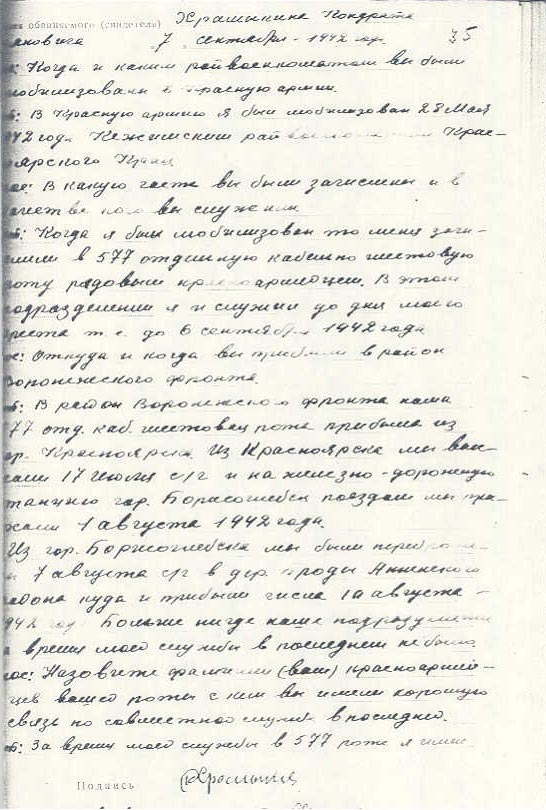 обвиняемого (свидетеля) Храмынина Кондрата
7 сентября - 1942 год. 35
Когда и каким райвоенкоматом вы были
мобилизованы в красную армию.
В красную армию я был мобилизован 28 Мая
42 года Кежемским Крас-
ноярского Края
В какую часть вы были зачислены и в
качестве кого вы служили
Когда я был мобилизован то меня зачи-
слили в 577 отдельную кабельно шестовую
роту рядовым красноармейцем. В этом
подразделении я и служил до дня моего
ареста т. е. до 6 сентября 1942 года
Откуда и когда вы прибыли в район
Воронежского фронта.
В район Воронежского фронта наша
77 отд. каб. шестовая рота прибыла из
гор. Красноярска. Из Красноярска мы вые-
хали 17 Июля с/г и на железно-дорожную
станцию гор. Борисоглебск поездом мы прие-
хали 1 августа 1942 года.
Из гор. Борисоглебска мы были переброше-
ны 7 августа с/г в дер. Броды Аннинского
района куда и прибыли числа 10 августа -
942 год. Больше нигде наше подразделение
за время моей службы в последнем не было.
Назовите фамилии (ваш) красноармей-
цев вашей роты с кем вы имели хорошую
связь по совместной службе в последней.
За время моей службы в 577 роте я имел
Подпись